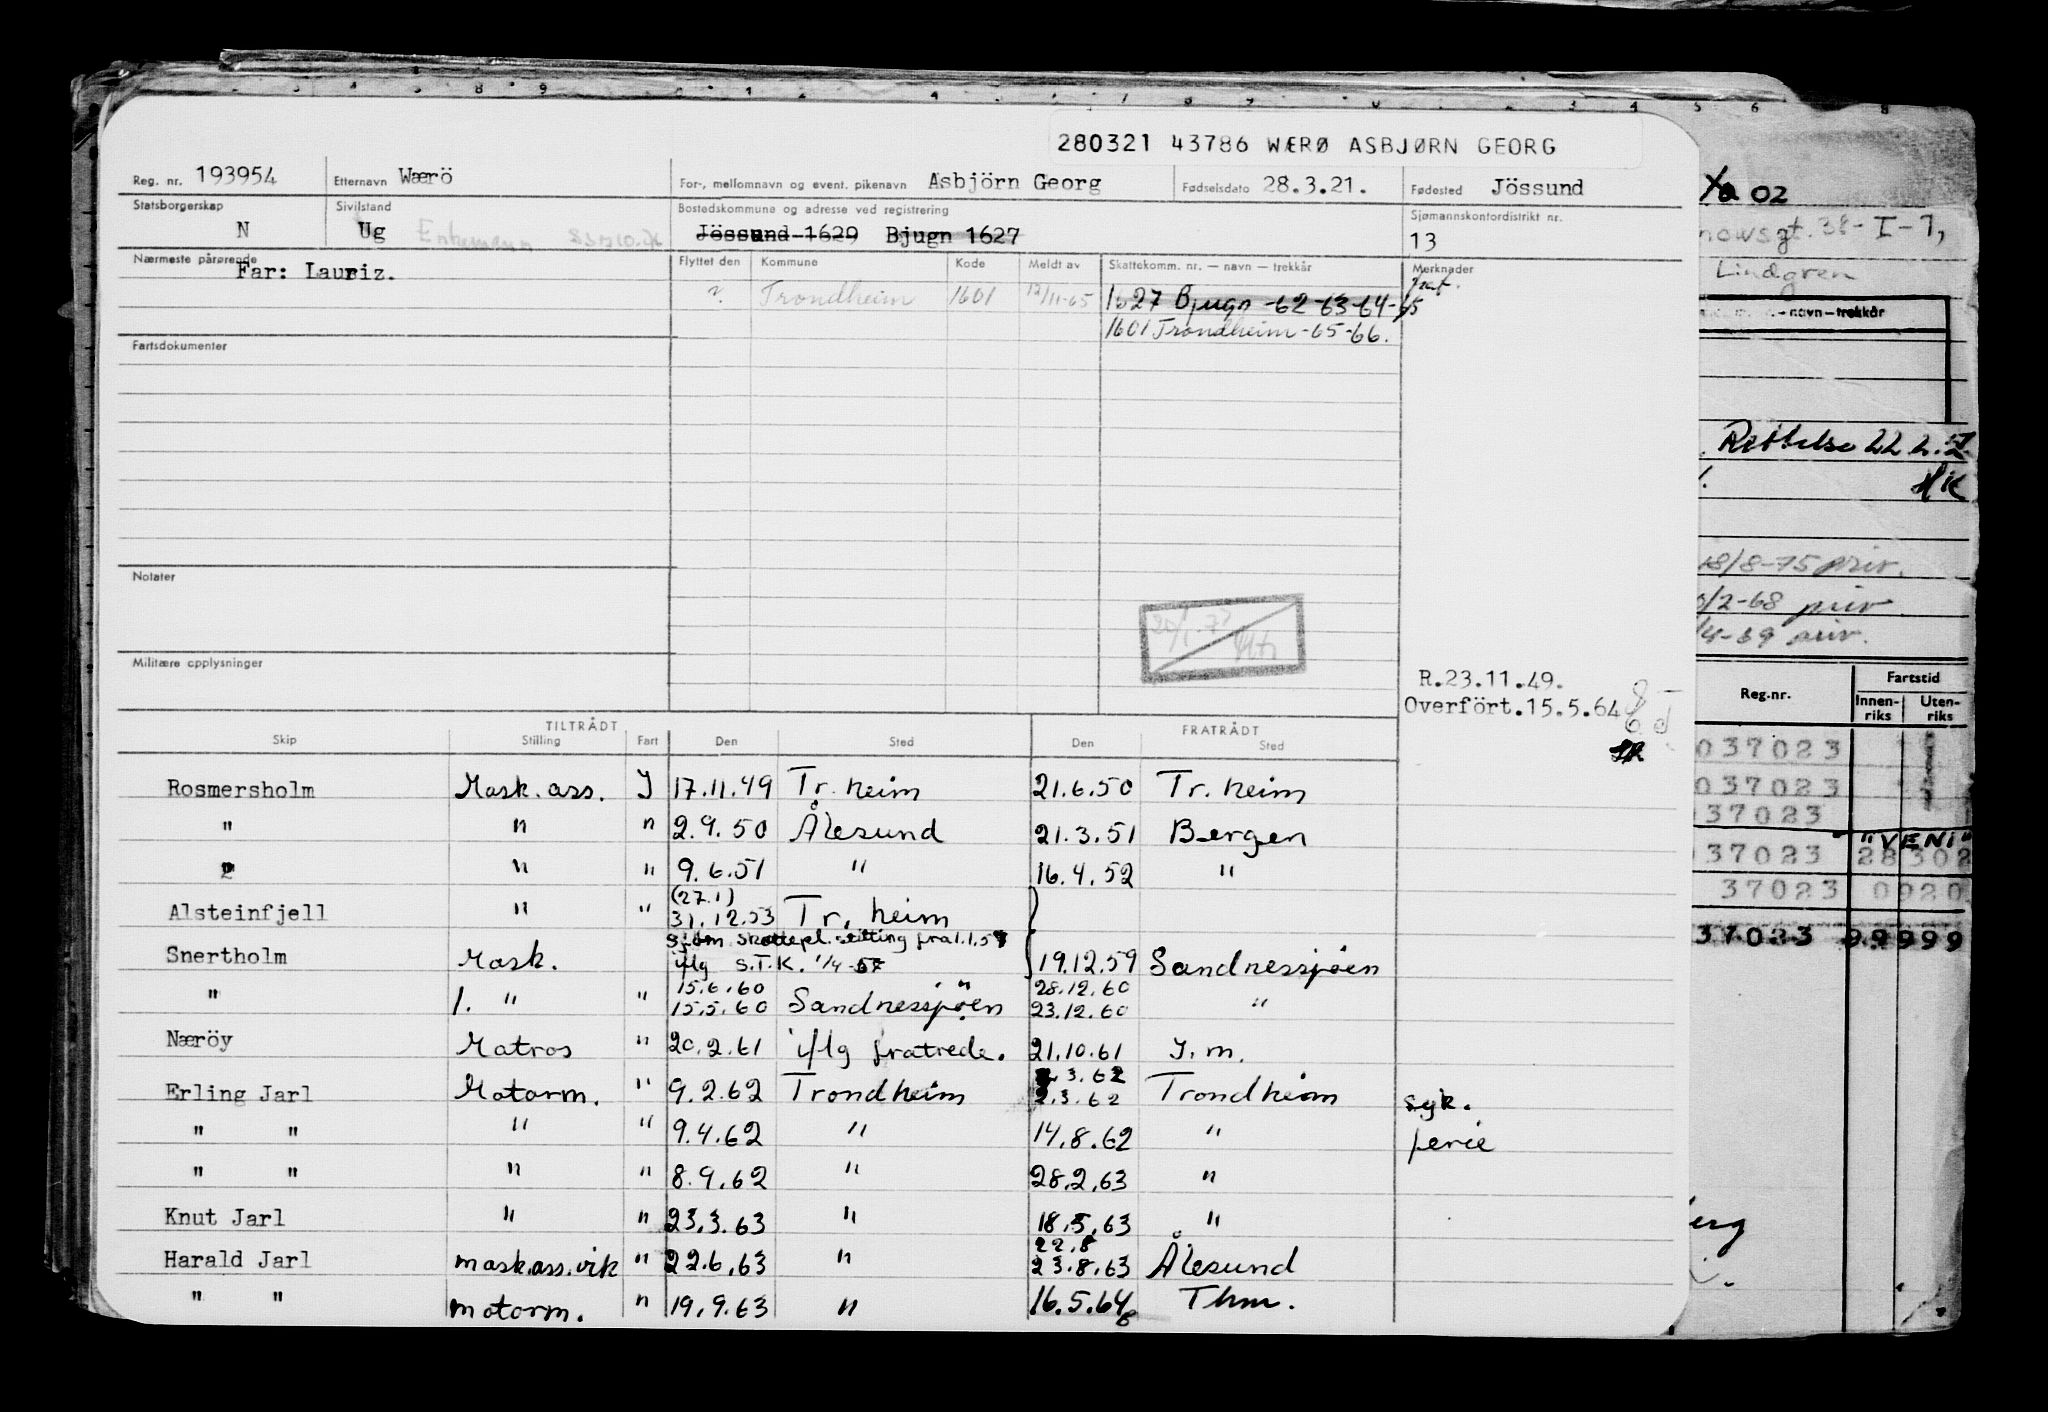 280321 43786 WÆRØ ASBJØRN GEORG
Reg. nr. 193954 Etternavn Wærö For-, mellomnavn og event. pikenavn Asbjörn Georg Fødselsdato 28.3.21. Fødested Jössund
Statsborgerskap N Sivilstand Ug Bostedskommune og adresse ved registrering Jössund 1629 Bjugn 1627 Sjømannskontordistrikt nr. 13
Nærmeste pårørende Far: Lauriz. Flyttet den Kommune Kode Meldt av Skattekomm. nr. — navn — trekkår Merknader
? Trondheim 1601 12/11-65 1627 Bjugn -62-63-64-65
1601 Trondheim -65-66.
Fartsdokumenter
Notater
Militære opplysninger
R.23.11.49.
Overfört.15.5.64
TILTRÅDT FRATRÅDT
Skip Stilling Fart Den Sted Den Sted
Rosmersholm Mask. ass. J 17.11.49 Tr. heim 21.6.50 Tr. heim
" " " 2.9.50 Ålesund 21.3.51 Bergen
" " " 9.6.51 " 16.4.52 "
(27.1)
Alsteinfjell " " 31.12.53 Tr. heim
Sjøm. skattepl. stilling fra 1.1.57
Snertholm Mask. iflg S.T.K. 1/4-57 19.12.59 Sandnessjøen
15.6.60 " 28.12.60
" 1. " " 15.5.60 Sandnessjøen 23.12.60 "
Næröy Matros " 20.2.61 iflg fratrede. 21.10.61 J. m.
3.62
Erling Jarl Motorm. " 9.2.62 Trondheim 2.3.62 Trondheim syk.
" " " " 9.4.62 " 14.8.62 " ferie
" " " " 8.9.62 " 28.2.63 "
Knut Jarl " " 23.3.63 " 18.5.63 "
22.8
Harald Jarl mask.ass.vik " 22.6.63 " 23.8.63 Ålesund
" " motorm. " 19.9.63 " 16.5.64 Thm.
02
38-I-7,
Lindgren
-navn-trekkår
Rettelse 22.2.57
HK
18/8-75 priv.
/2-68 priv
/4-69 priv.
Reg.nr. Fartstid
Innen-riks Uten-riks
037023
037023
37023
"VENI"
37023 28302
37023 0920
37023 99999
erg